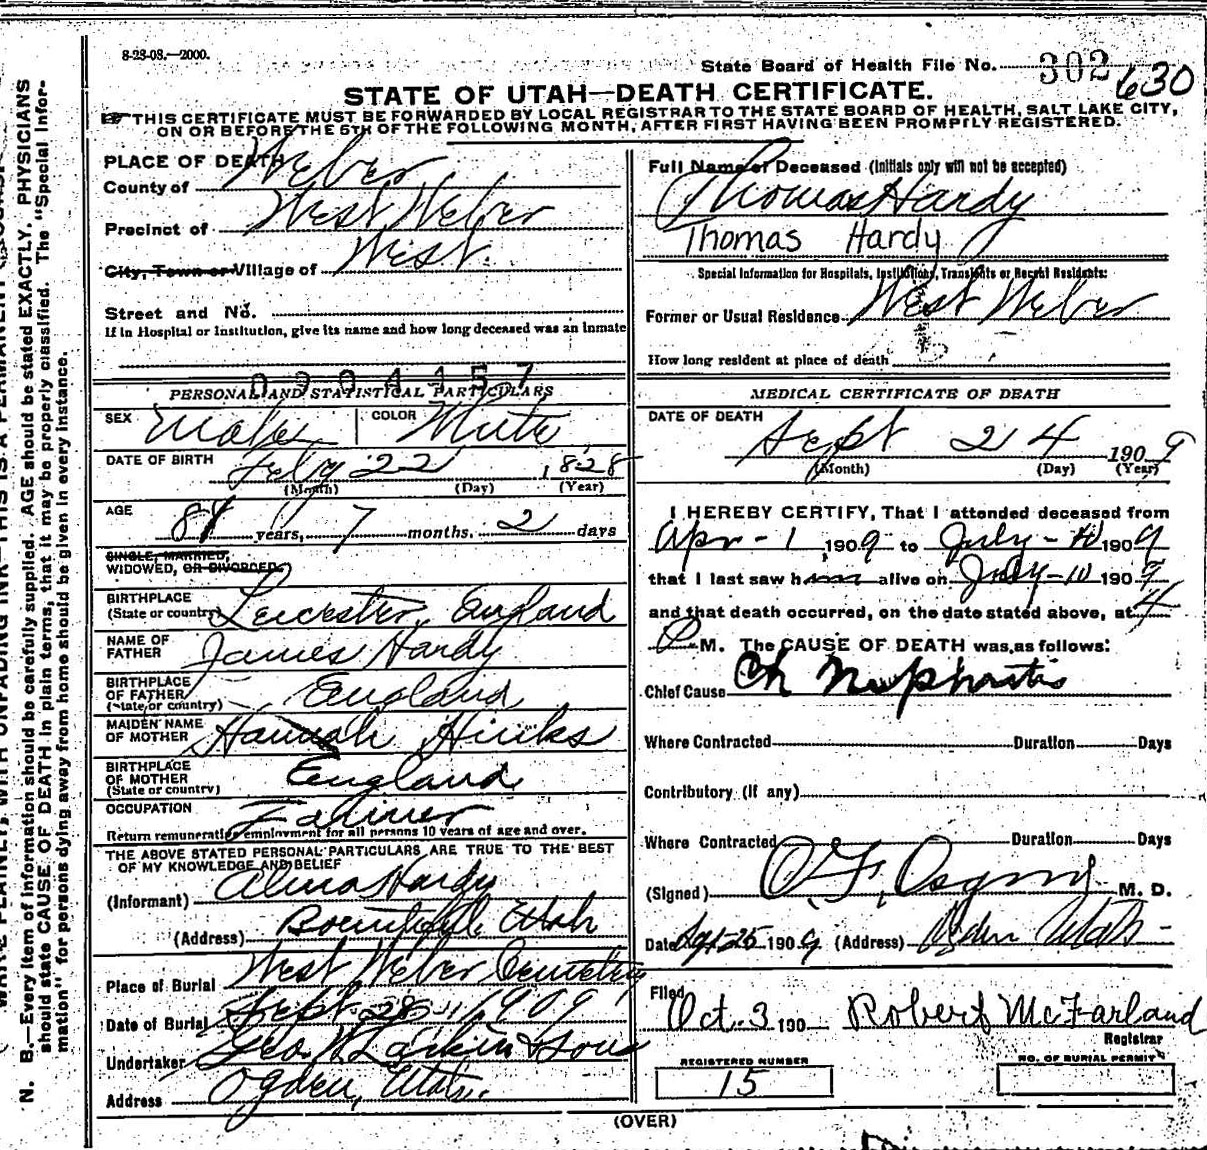 8-28-08.—2000.
State Board of Health File No. 302 630
STATE OF UTAH—DEATH CERTIFICATE.
THIS CERTIFICATE MUST BE FORWARDED BY LOCAL REGISTRAR TO THE STATE BOARD OF HEALTH, SALT LAKE CITY,
ON OR BEFORE THE 5TH OF THE FOLLOWING MONTH, AFTER FIRST HAVING BEEN PROMPTLY REGISTERED.
PLACE OF DEATH
County of Weber
Precinct of West Weber
City, Town or Village of West
Street and No.
If in Hospital or Institution, give its name and how long deceased was an inmate
0904157
PERSONAL AND STATISTICAL PARTICULARS
SEX Male COLOR White
DATE OF BIRTH Feby 22 1828
(Month) (Day) (Year)
AGE 81 years, 7 months. 2 days
SINGLE, MARRIED,
WIDOWED, OR DIVORCED
BIRTHPLACE
(State or country) Leicester, England
NAME OF
FATHER James Hardy
BIRTHPLACE
OF FATHER England
(State or country)
MAIDEN NAME
OF MOTHER Hannah Hinks
BIRTHPLACE
OF MOTHER England
(State or country)
OCCUPATION Farmer
Return remunerative employment for all persons 10 years of age and over.
THE ABOVE STATED PERSONAL PARTICULARS ARE TRUE TO THE BEST
OF MY KNOWLEDGE AND BELIEF
(Informant) Alma Hardy
(Address) Bountiful Utah
Place of Burial West Weber Cemetery
Date of Burial Sept. 28 1909
Undertaker Geo W Larkin & Sons
Address Ogden, Utah.
Full Name of Deceased (Initials only will not be accepted)
Thomas Hardy
Thomas Hardy
Special Information for Hospitals, Institutions, Transients or Recent Residents:
Former or Usual Residence West Weber
How long resident at place of death
MEDICAL CERTIFICATE OF DEATH
DATE OF DEATH
Sept 24 1909
(Month) (Day) (Year)
I HEREBY CERTIFY, That I attended deceased from
Apr-1, 1909 to July-10 1909
that I last saw h alive on July-10 1909
and that death occurred, on the date stated above, at 4
P M. The CAUSE OF DEATH was as follows:
Chief Cause Ch Nephritis
Where Contracted Duration Days
Contributory (if any)
Where Contracted Duration Days
(Signed) O. F. M. D.
Date Sept 25 1909 (Address) Ogden Utah
Filed
Oct. 3 190 Robert McFarland
Registrar
REGISTERED NUMBER
15
NO. OF BURIAL PERMIT
(OVER)
N. B.—Every item of information should be carefully supplied. AGE should be stated EXACTLY. PHYSICIANS
should state CAUSE OF DEATH in plain terms, that it may be properly classified. The "Special Infor-
mation" for persons dying away from home should be given in every instance.